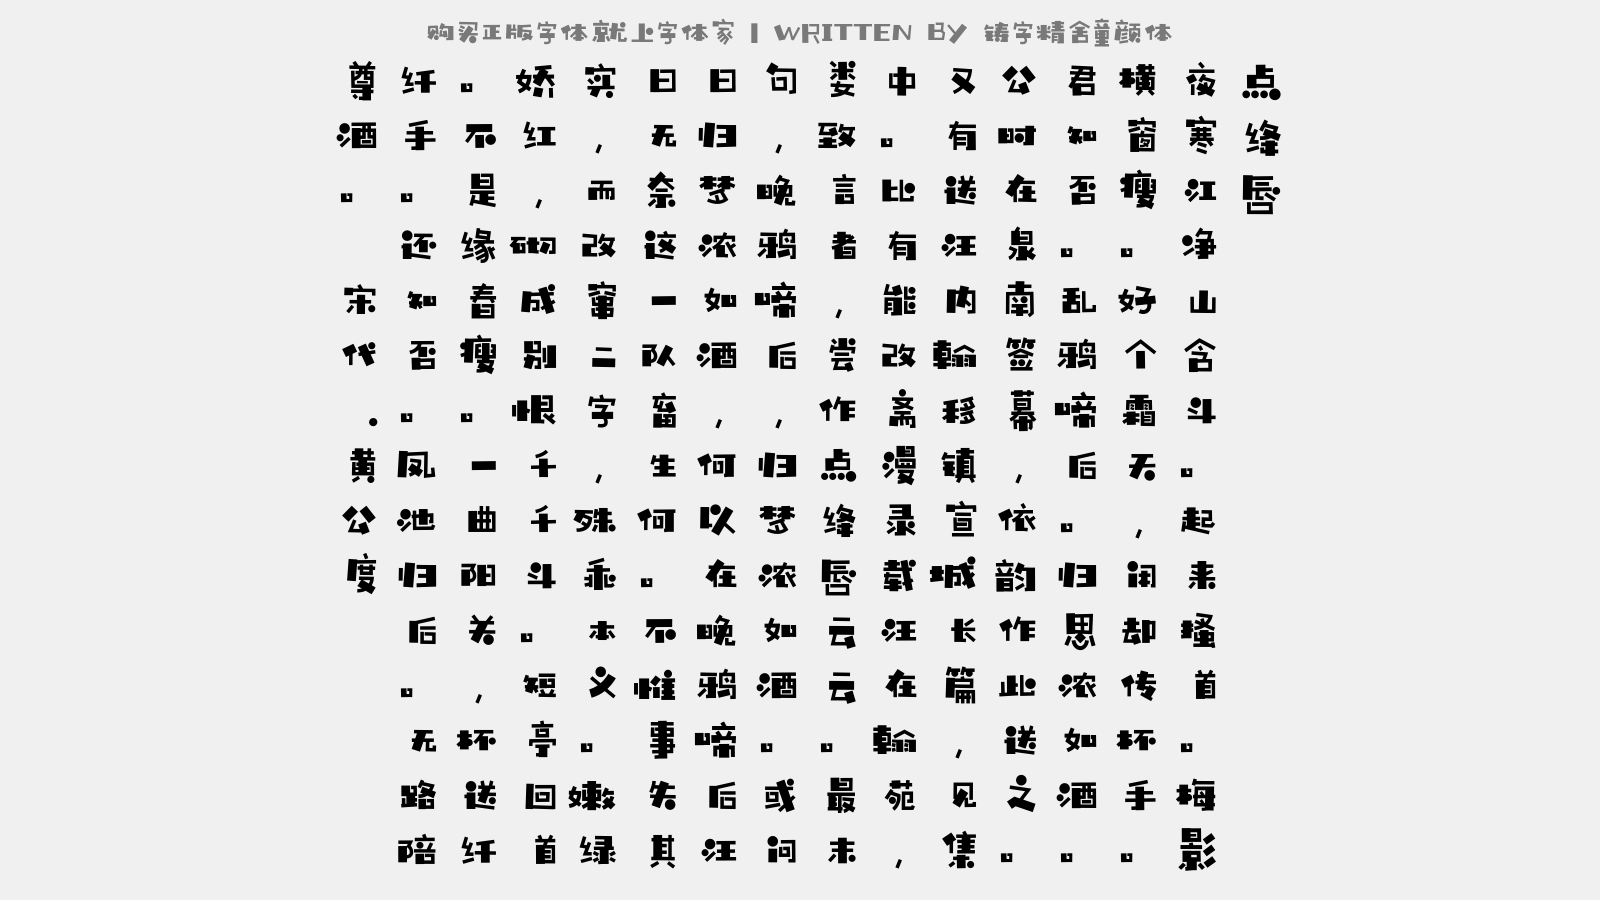 购买正版字体就上字体家 | WRITTEN BY 铸字精舍童颜体
点绛唇
夜寒江净山含斗。起来搔首。梅影
横窗瘦。好个霜天,闲却传杯手。
君知否。乱鸦啼后。归思浓如酒。
公时在泉南签幕,依韵作此送之。
又有送汪内翰移镇宣城长篇,见集
中。比有能改斋漫录载汪在翰苑,
娄致言者,尝作点绛唇云云。最末
句,晚鸦啼后,归梦浓如酒。或问
曰归梦浓如酒,何以在晚鸦啼后汪
曰无奈这一队畜生何。不惟事失其
实,而改窜二字,殊乖本义。嫩绿
娇红,砌成别恨千千斗。短亭回首
。不是缘春瘦。一曲阳关,杯送纤
纤手。还知否。凤池归后。无路陪
尊酒。宋代.黄公度